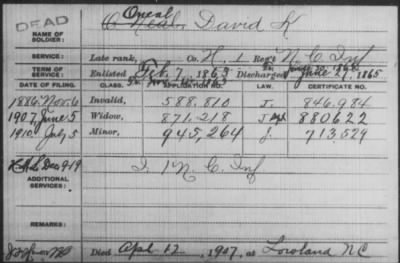 DEAD
Oneal
NAME OF SOLDIER: O'Neal, David K
SERVICE: Late rank, Co. H, 1 Reg't N.C. Inf
TERM OF SERVICE: Enlisted Feb 7, 1863 Discharged June 27, 1865
DATE OF FILING. CLASS. APPLICATION NO. LAW. CERTIFICATE NO.
1886 Nov. 6 Invalid, 588,810 J. 846,984
1907 June 5 Widow, 871,218 880622
1910 July 5 Minor, 945,264 J. 713,529
ADDITIONAL SERVICES: I 1 N.C. Inf
REMARKS:
Died Apl 12, 1907, at Lowland NC